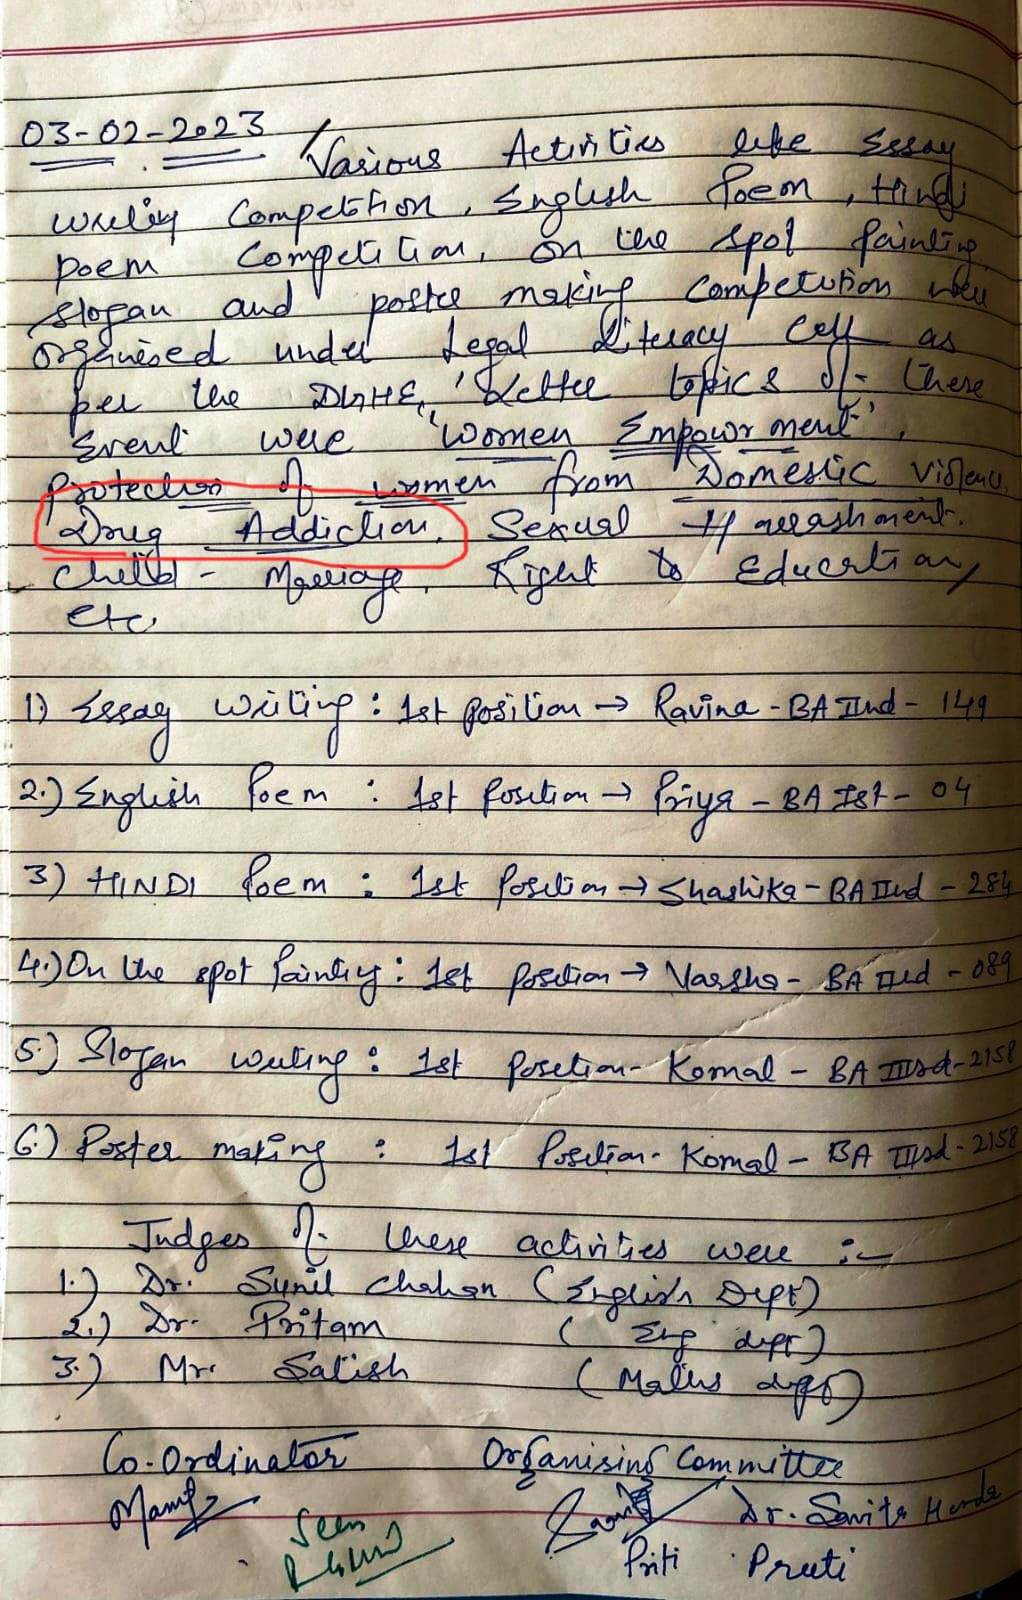 03-02-2023
Various Activities like Essay
writing Competition, English Poem, Hindi
poem Competition, on the spot Painting,
slogan and poster making Competition were
organised under Legal Literacy Cell as
per the DGHE, Letter topics of these
Event were 'Women Empowrment',
Protection of women from Domestic Violence,
Drug Addiction, Sexual Harrashment,
Child-Marriage, Right to Education,
etc.
1) Essay writing : 1st position → Ravina - BA IInd - 149
2.) English Poem : 1st Position → Priya - BA Ist - 04
3) HINDI Poem : 1st Position → Shashika - BA IInd - 284
4.) On the spot Painting : 1st position → Varsha - BA IInd - 089
5.) Slogan writing : 1st Position - Komal - BA IIIrd - 2158
6.) Poster making : 1st Position - Komal - BA IIIrd - 2158
Judges of these activities were :-
1.) Dr. Sunil Chahan (English Dept)
2.) Dr. Pritam (Eng dept)
3.) Mr. Satish (Maths dept)
Co-Ordinator Organising Committee
Dr. Savita
Seen
Priti Preeti